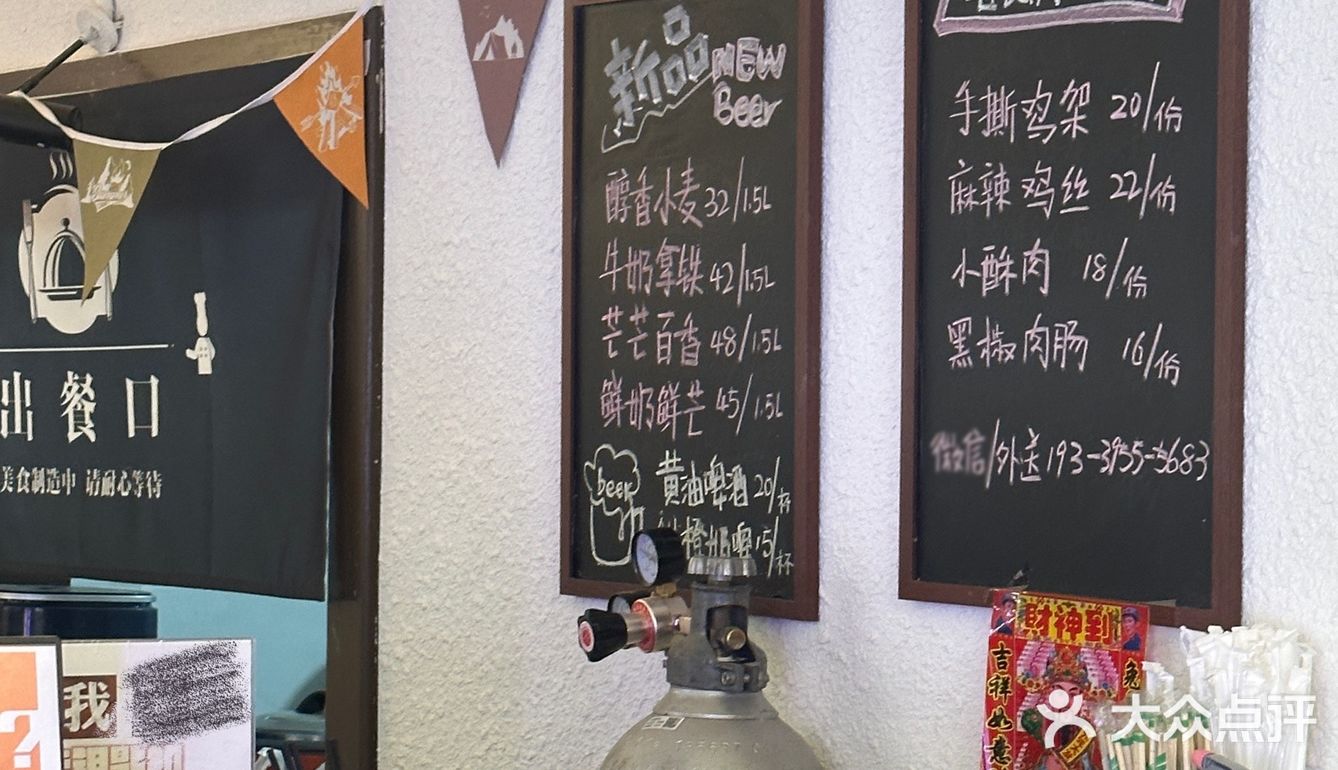 出餐口
美食制造中 请耐心等待
我
?
新品 NEW
Beer
醇香小麦 32/1.5L
牛奶拿铁 42/1.5L
芒芒百香 48/1.5L
鲜奶鲜芒 45/1.5L
beer
黄油啤酒 20/杯
橙奶啤 15/杯
手撕鸡架 20/份
麻辣鸡丝 22/份
小酥肉 18/份
黑椒肉肠 16/份
微信/外送 193-3955-3683
財神到
吉祥如意
大众点评